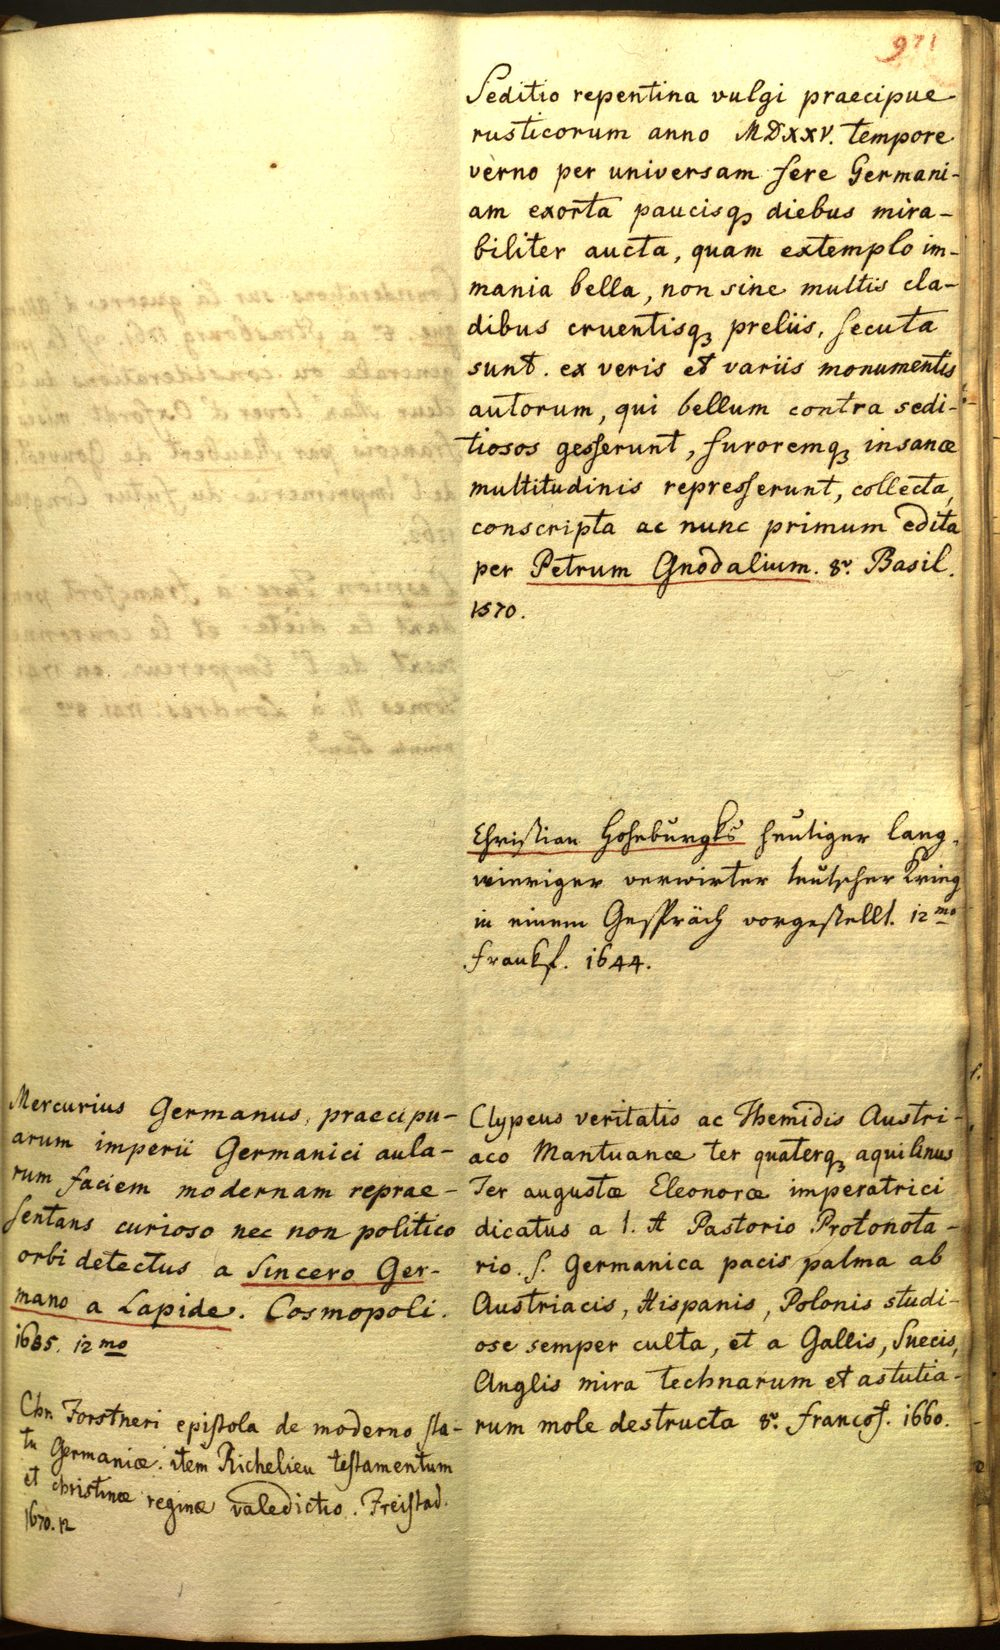 971
Seditio repentina vulgi praecipue
rusticorum anno MDXXV. tempore
verno per universam fere Germani-
am exorta paucisq₃ diebus mira-
biliter aucta, quam extemplo im-
mania bella, non sine multis cla-
dibus cruentisq₃ preliis, secuta
sunt. ex veris et variis monumentis
autorum, qui bellum contra sedi-
tiosos gesserunt, furoremq₃ insanæ
multitudinis represserunt, collecta,
conscripta ac nunc primum edita
per Petrum Gnodalium. 8º. Basil.
1570.
Christian Hohburgks heutiger lang-
wieriger verwirter teutscher Krieg
in einem Gespräch vorgestellt. 12mo
Frankf. 1644.
Mercurius Germanus, praecipu-
arum imperii Germanici aula-
rum faciem modernam reprae-
sentans curioso nec non politico
orbi detectus a Sincero Ger-
mano a Lapide. Cosmopoli.
1685. 12mo
Chn Forstneri epistola de moderno sta-
tu Germaniæ. item Richelieu testamentum
et christinæ reginæ valedictio. Freistad.
1670. 12
Clypeus veritatis ac Themidis Austri-
aco Mantuanæ ter quaterq₃ aquilinus
Ter augustæ Eleonoræ imperatrici
dicatus a I. A Pastorio Protonota-
rio. s. Germanica pacis palma ab
Austriacis, Hispanis, Polonis studi-
ose semper culta, et a Gallis, Suecis,
Anglis mira technarum et astutia-
rum mole destructa 8º. Francof. 1660.